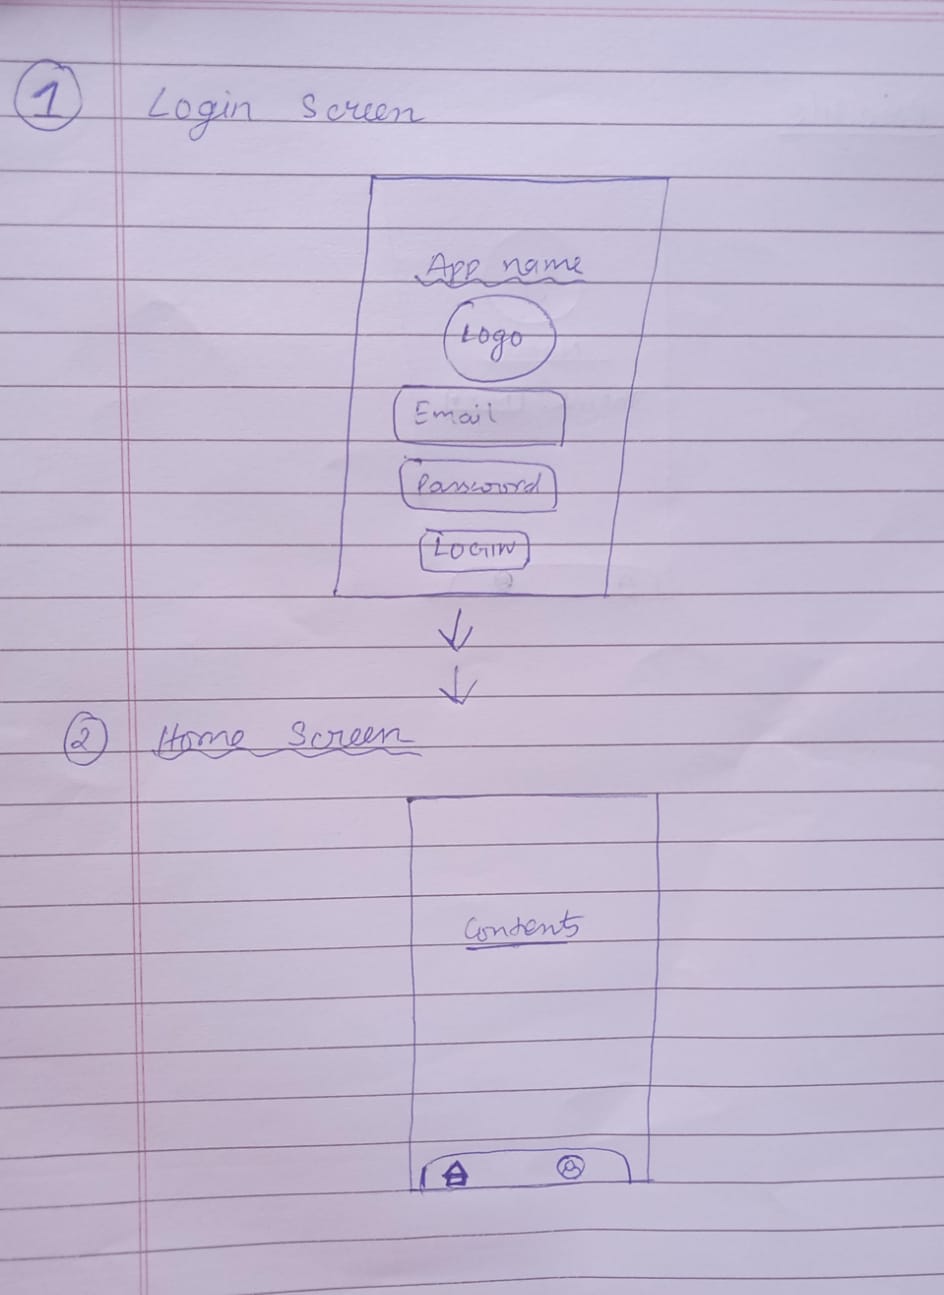 1 Login Screen
App name
Logo
Email
Password
LOGIN
2 Home Screen
Contents